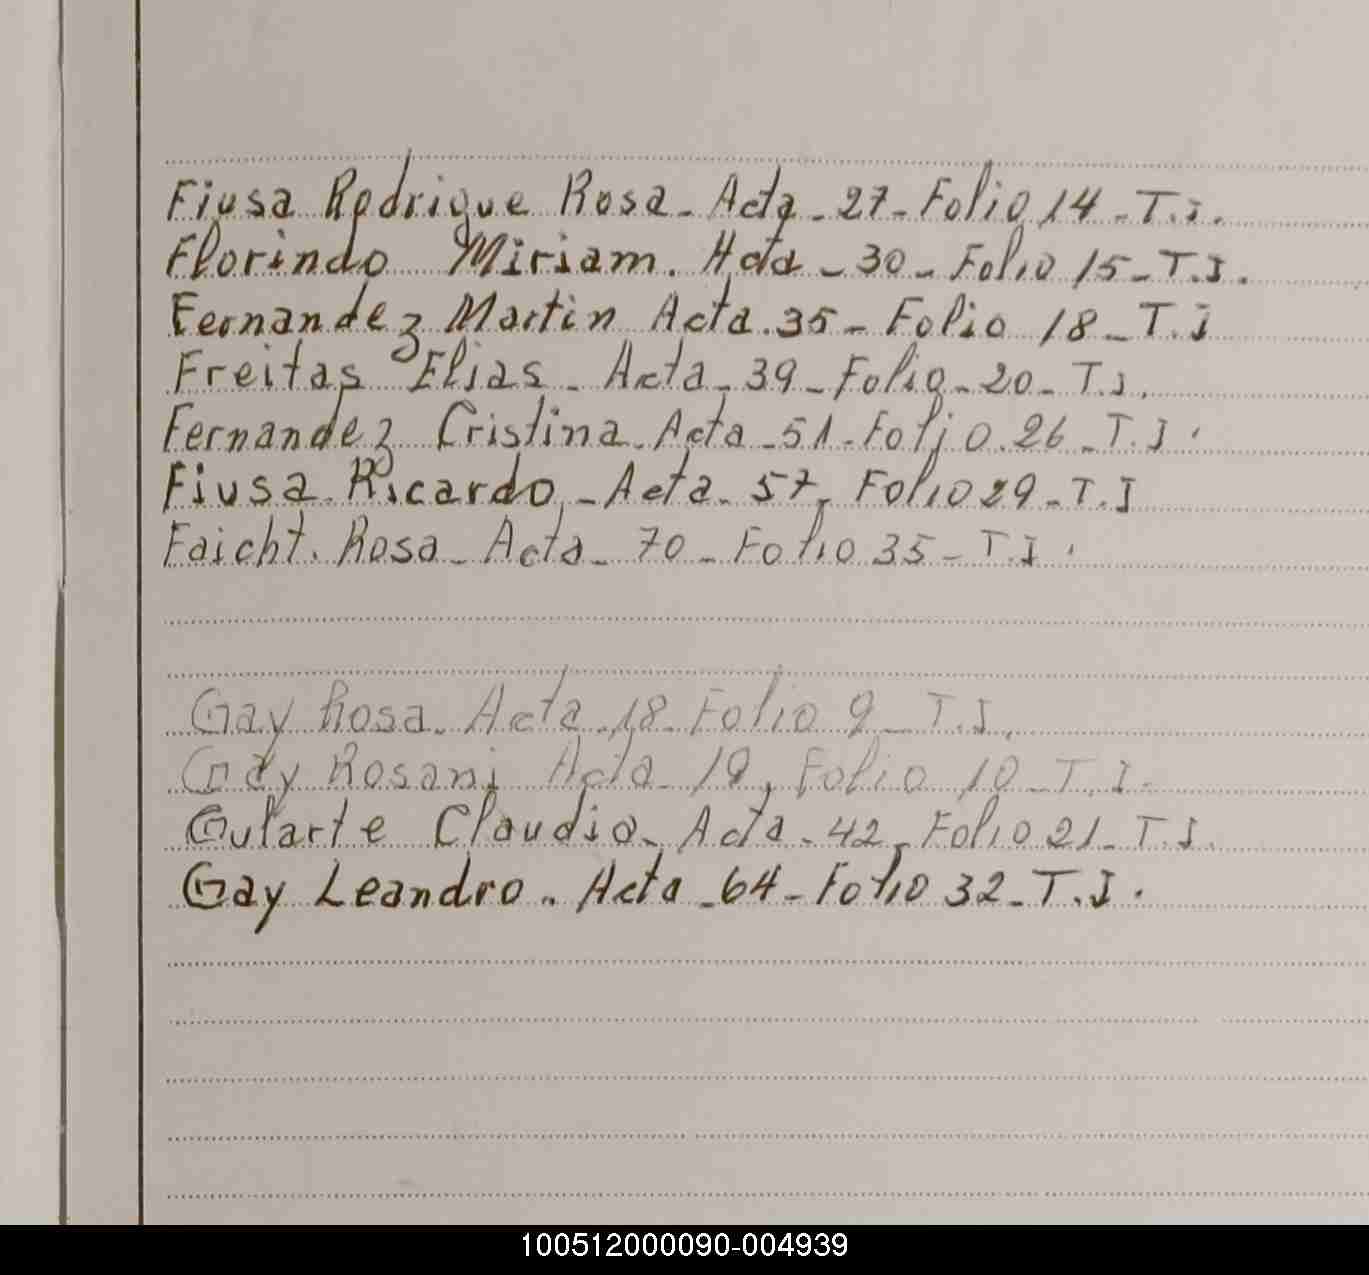 Fiusa Rodrigue Rosa - Acta - 27 - Folio 14 - T.I.
Florindo Miriam. Acta - 30 - Folio 15 - T.I.
Fernandez Martin Acta. 35 - Folio 18 - T.I
Freitas Elias - Acta - 39 - Folio - 20 - T.I.
Fernandez Cristina - Acta - 51 - Folio. 26 - T.I.
Fiusa Ricardo - Acta - 57, Folio 29 - T.I
Faicht. Rosa - Acta - 70 - Folio 35 - T.I.
Gay Rosa. Acta - 18 - Folio 9 - T.I.
Gay Rosani Acta - 19, Folio 10 - T.I.
Gularte Claudio. Acta - 42, Folio 21 - T.I.
Gay Leandro. Acta - 64 - Folio 32 - T.I.
100512000090-004939